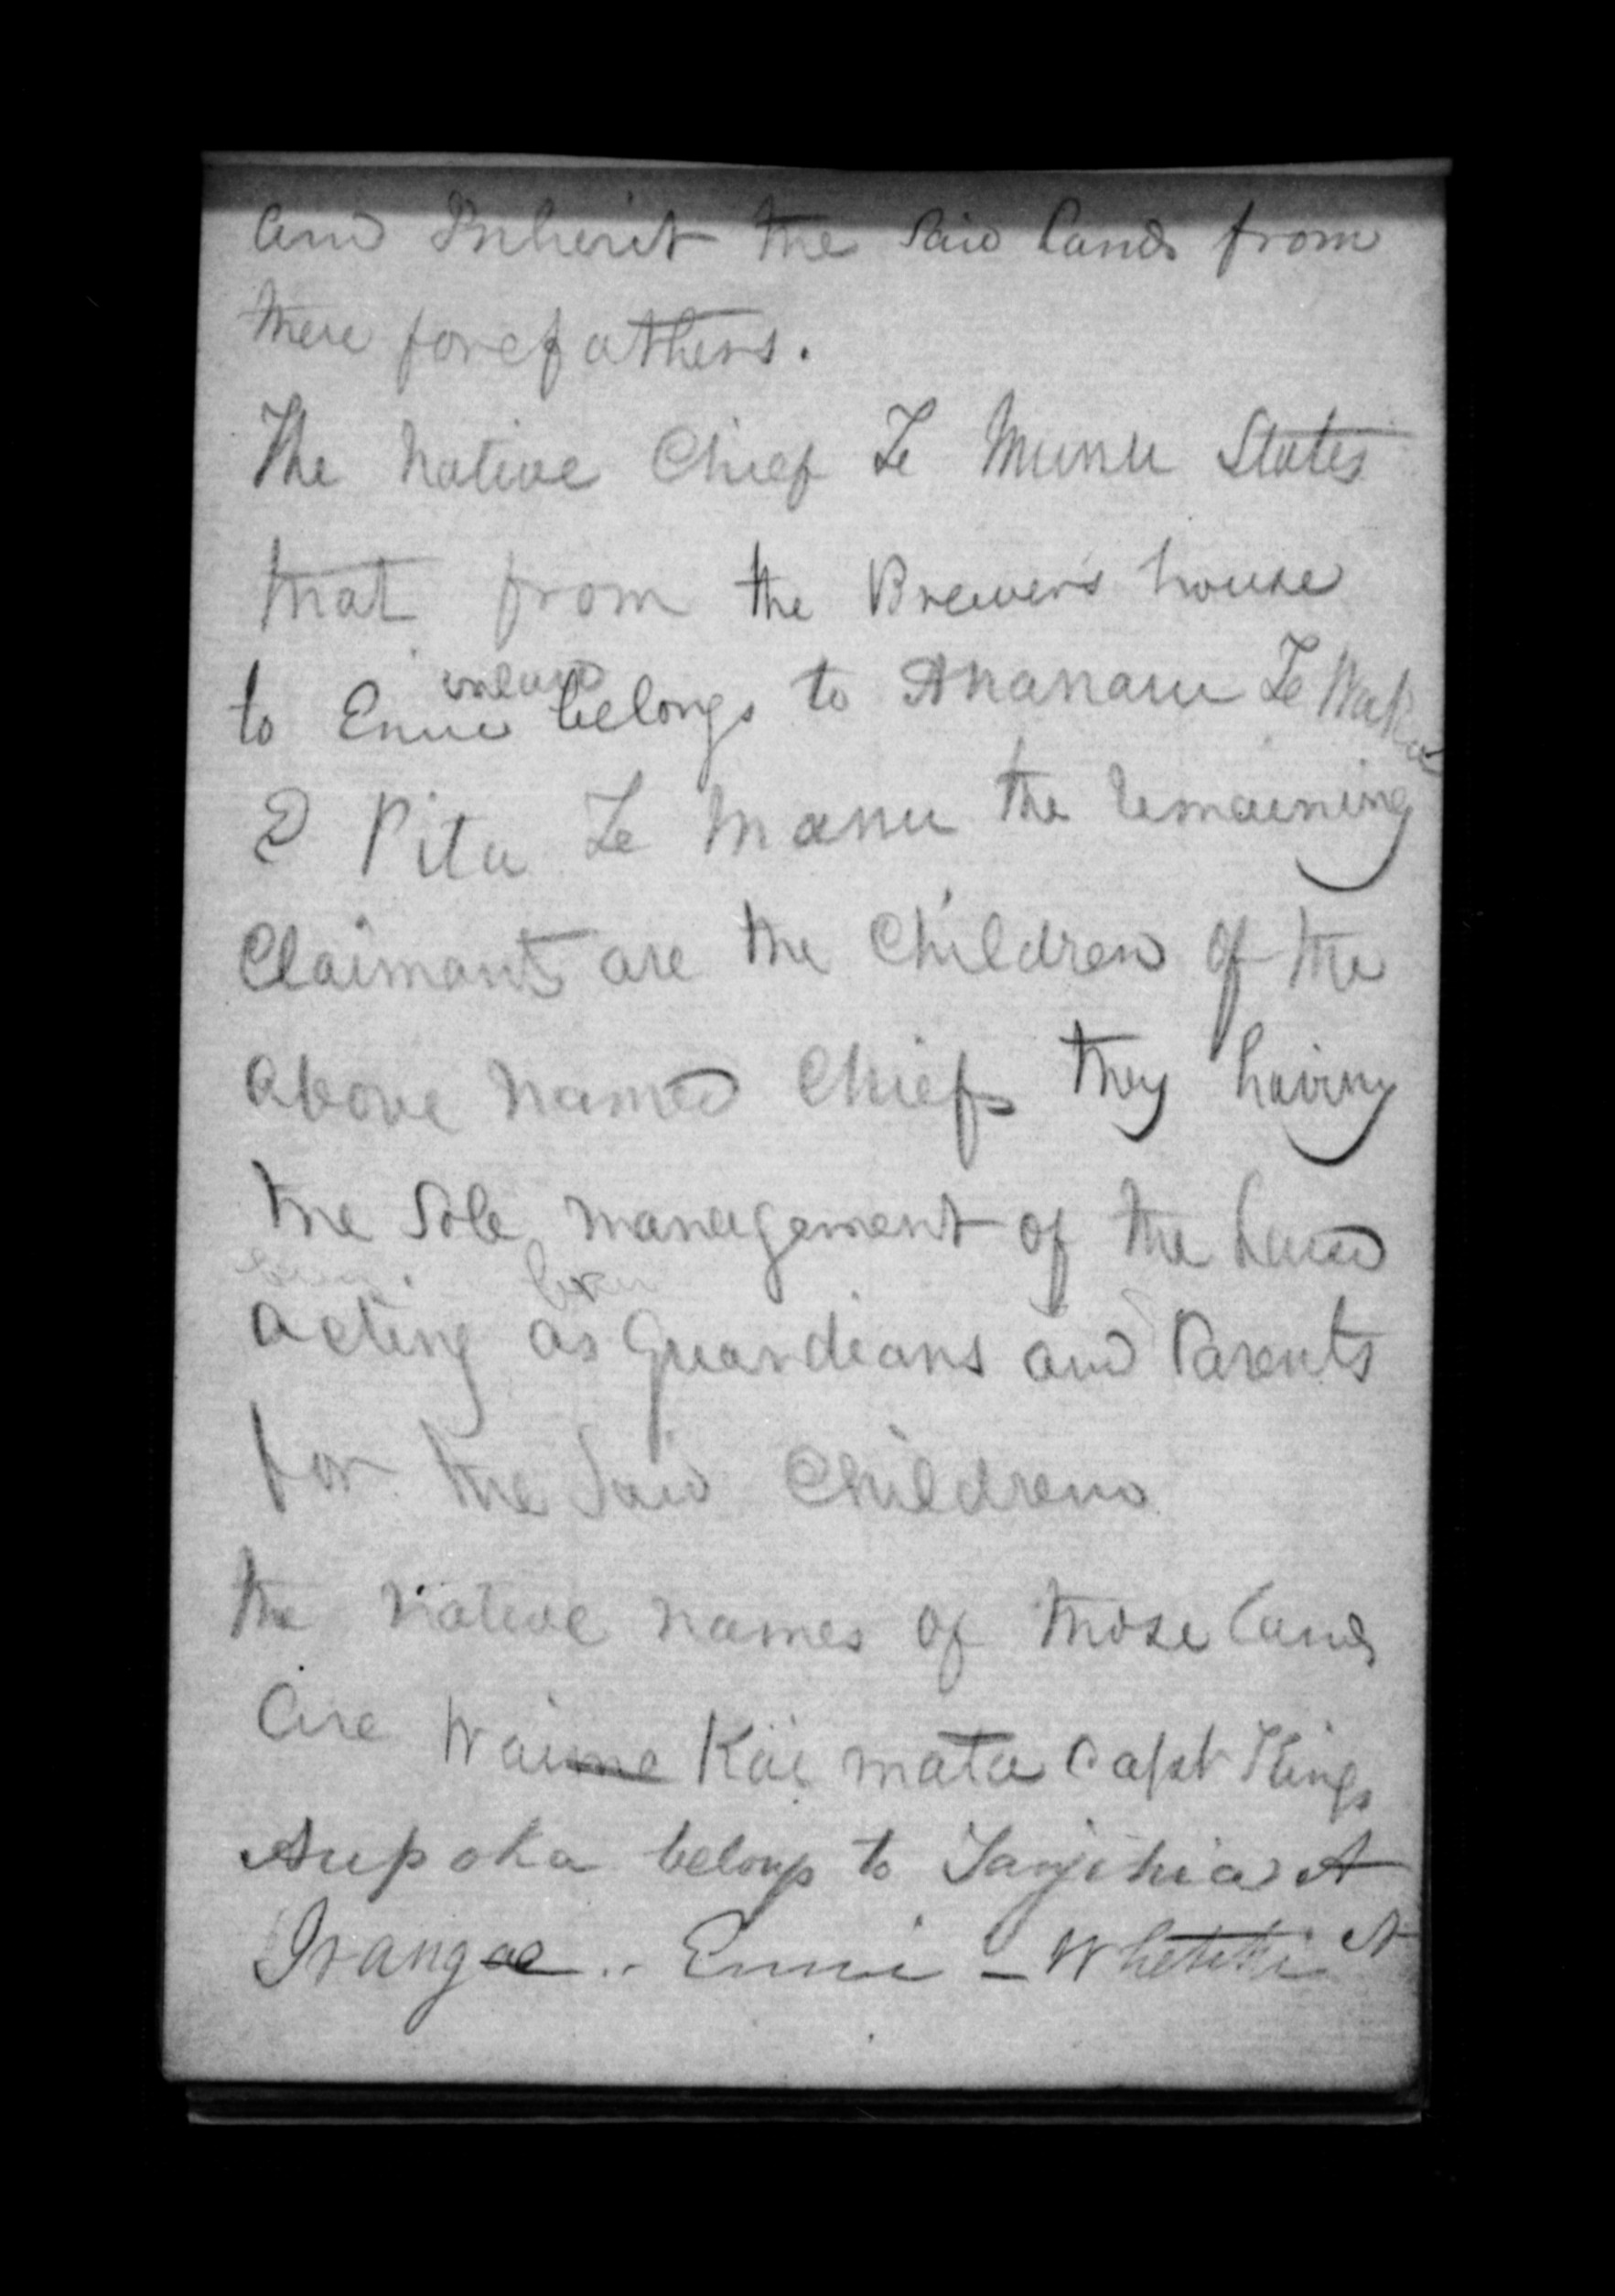 and Inherit the said lands from
there forefathers.
The native Chief Te Munu States
that from the Brewers house
inland
to Enui belongs to Ananaru Te Waka
2 Pita Te Manu the remaining
Claimants are the Children of the
above named Chiefs they having
the Sole management of the Land
acting as Guardians and Parents
for the said Children
the native names of those lands
are Wai Kai mata Capt Kings
Aupoka belongs to A
Enui - A